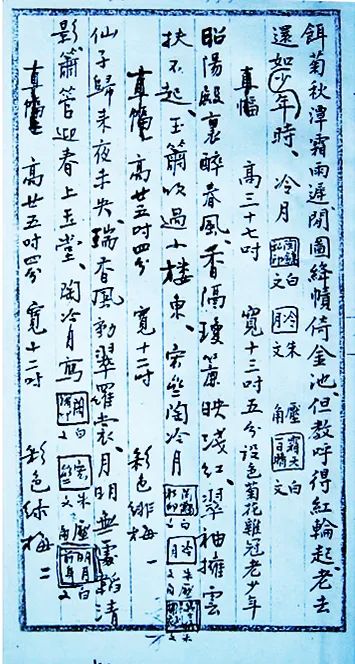 餌菊秋潭霜雨遲開圖絳幘倚金池但教呼得紅輪起老去
還如少年時、冷月 白文 冷月 朱文 壓角 白文
真幅 高三十七吋 寬十三吋五分 設色菊花雞冠老少年
昭陽殿裏醉春風、香隔瓊簾映淺紅、翠袖擁雲
扶不起、玉簫吹過小樓東、 陶冷月
真幅 高廿五吋四分 寬十二吋 彩色緋梅 一
仙子歸來夜未央、瑞香風動翠羅裳、月明無處
影簫管迎春上玉堂、陶冷月寫
真幅 高廿五吋四分 寬十二吋 彩色綠梅 二